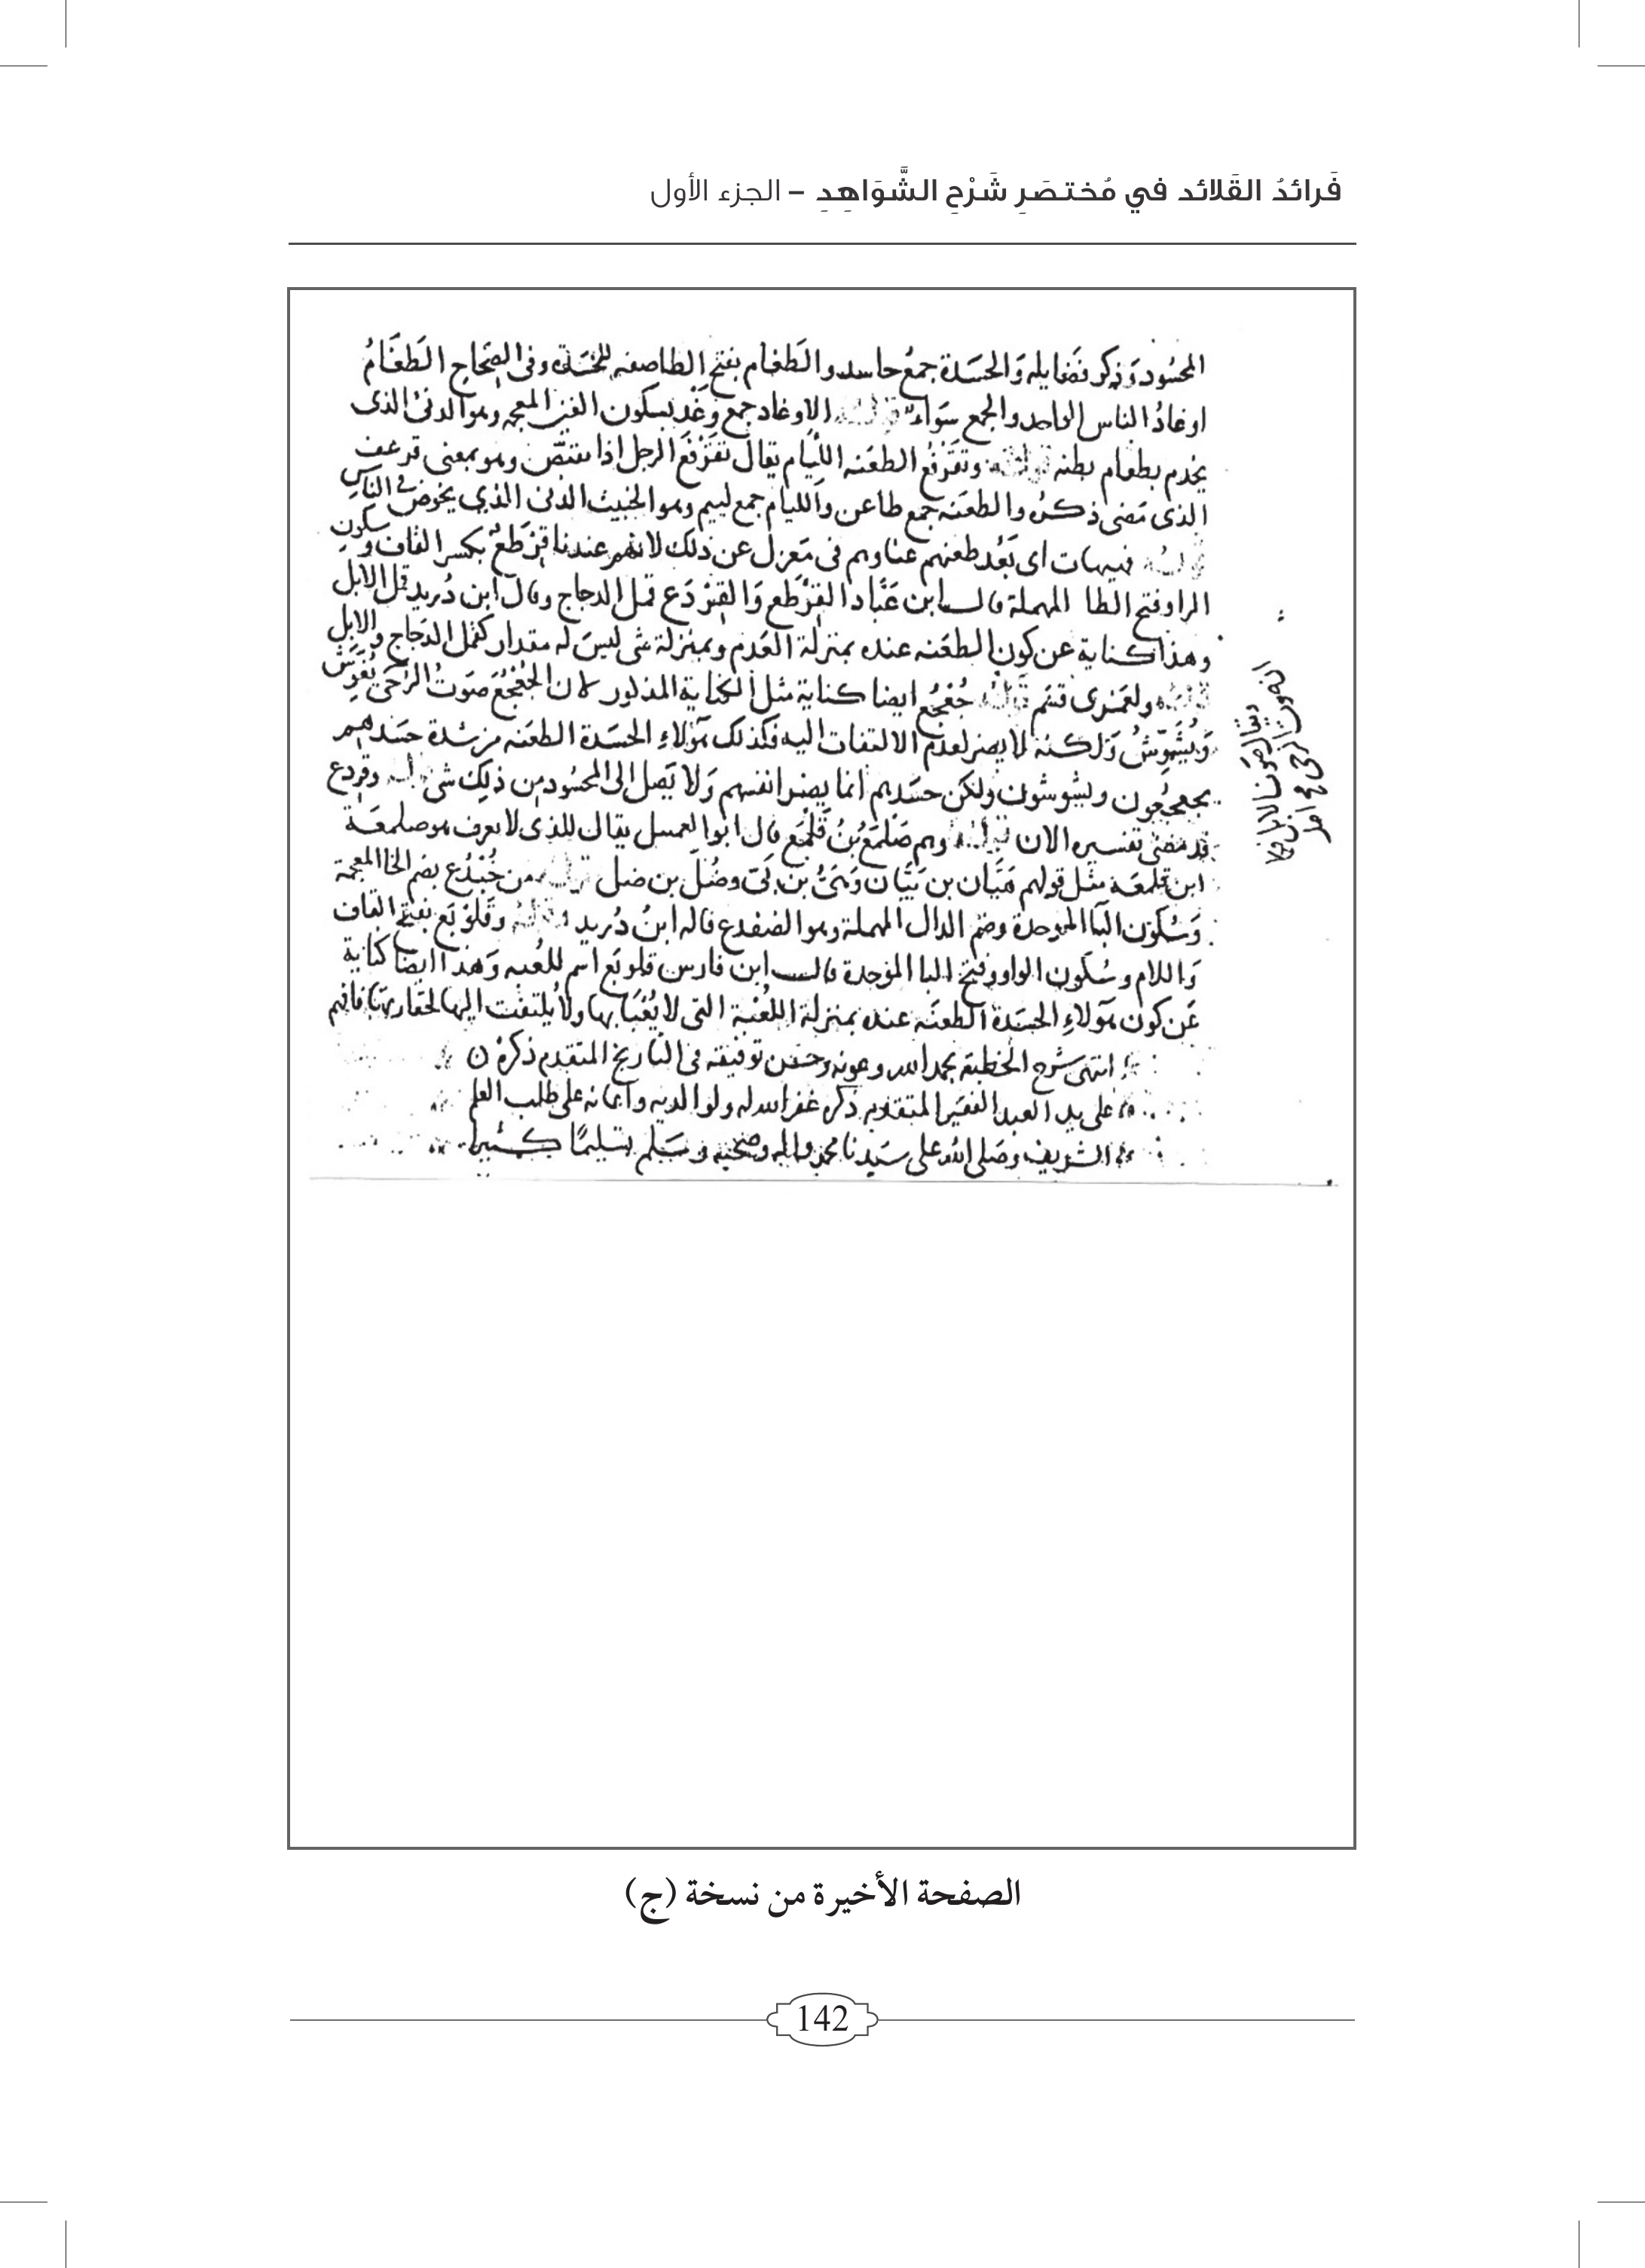 فَرائدُ القَلائد في مُختصَرِ شَرْحِ الشَّوَاهِدِ – الجزء الأول
المحسُود وَذكر فضَايله وَالحسَدة جمعُ حاسد والطَغام بفتح الطا صفه للحسَدة وفى الصِحَاح الطَغَامُ
اوغادُ الناس الواحد والجمع سَوَاء الاوغاد جمع وَغْد بسكون الغين المعجمه وهو الدنىْ الذى
يخدم بطعام بطنه وتقَرْفُع الطعَنه اللِّيَام يقال تقَرْفعَ الرجل اذا تقبّض وهو بمعنى قرعف
الذى مَضى ذكرُه والطعَنه جمع طاعن والليام جمع لييم وهو الخبيث الدنى الذي يخوض فى الناسِ
فهيهات اى بَعُد طعنهم عنا وهم فى مَعزل عن ذلك لانهم عندنا قِرْطَعٌ بكسر القاف وسكونِ
الرا وفتح الطا المهملة قال ابن عَبَّاد القِرْطَع وَالقِرْدَع قمل الدجاج وقال ابن دُريد قمل الابل
وهذا كناية عن كون الطعَنه عنده بمنزلة العَدم وبمنزلة شى ليسَ له مقدار كقمل الدَجاج والابِل
ولعَمْرى قسَم جُعْجُع ايضا كناية مثل الكناية المذكور لان الجُعْجُعَ صَوتُ الرَحى يُقَرّشِ
وَيُشَوّشُ وَلكنه لا يضر لعدَم الالتفات اليه فكذلك هَؤلاءِ الحسَدة الطعَنه من شدة حسَدهم
يجعجعُون ويشوشون ولكن حسَدهم انما يضر انفسهم وَلا يَصل الى المحسُود من ذلِك شى وقردع
قد مَضى تفسيره الان وهم صَلْمَعُ بْنُ قَلْمَع قال ابو العميسل يقال للذى لا يعرف هو صلمعَة
ابن قلمعَة مثل قولهم هَيَّان بن بَيَّان وَهَىُّ بن بَىّ وضُلّ بن ضل من خُبْدُع بضم الخا المعجمة
وَسُكوْن البَا الموحدة وضم الدال المهملة وهو الضفدع قاله ابنُ دُريد وقَلَوْبَع بفتح القاف
وَاللام وسُكون الواو وفتح البا الموحدة قال ابن فارس قلوبَع اسم للعُبه وَهَذا ايضًا كناية
عَن كون هَولاءِ الحسَدة الطعنَه عنده بمنزلة اللُعْبَة التى لا يُعْبَا بها ولا يُلتفت اليها لحقارتها فافهم
انتهى شرح الخطبة بحمد الله وعونه وحسْن توفيقه فى التاريخ المتقدم ذكرهْ
على يد العبد الفقير المتقدم ذكره غفر الله له ولوالديه واعانه على طلب العلم
الشريف وصَلى الله على سَيدنا محمد واله وصَحبه وسَلم تسَليمًا كثيرا
الصفحة الأخيرة من نسخة (ج)
142